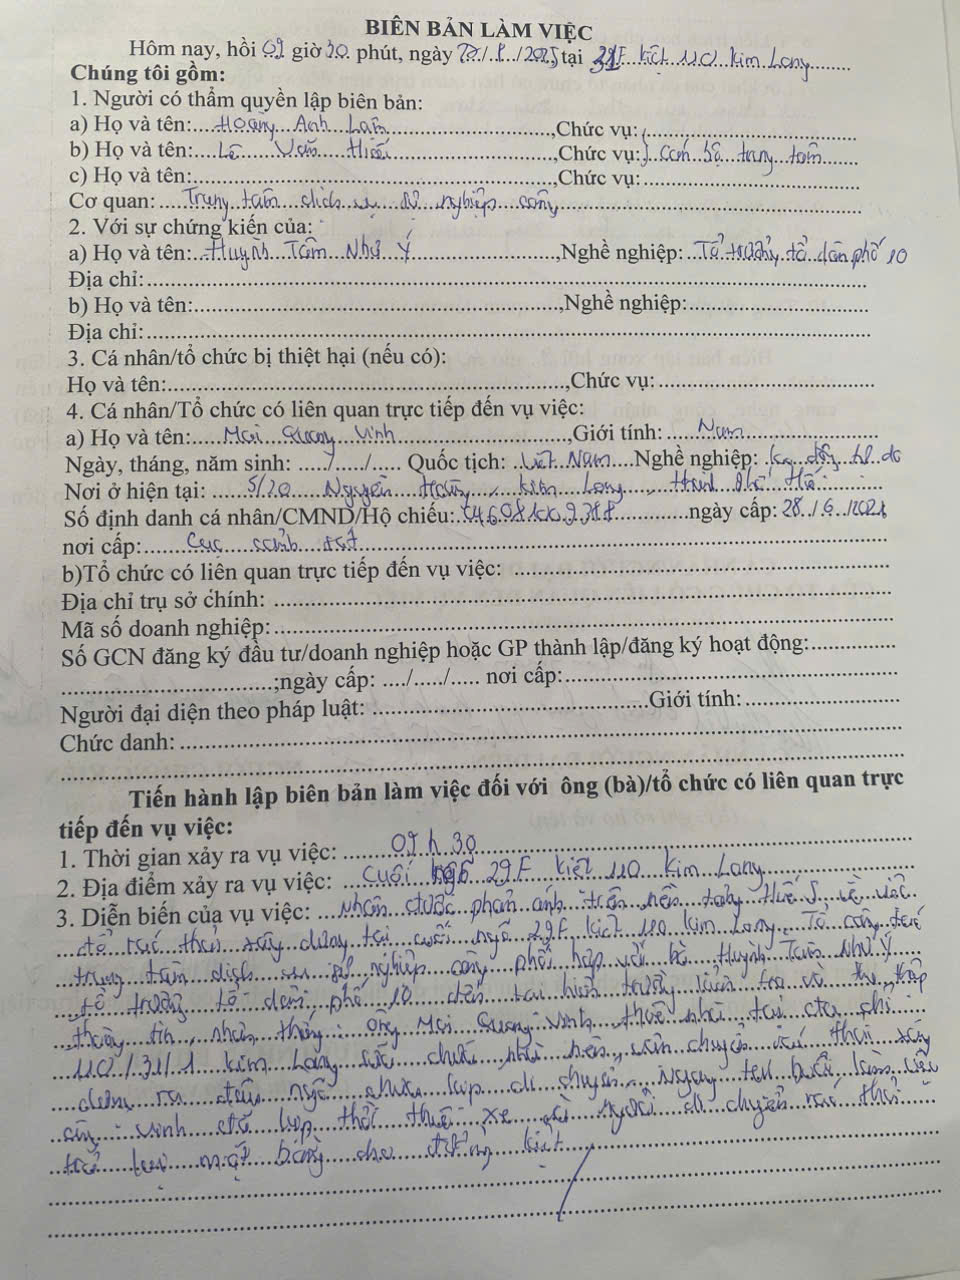 BIÊN BẢN LÀM VIỆC
Hôm nay, hồi 09 giờ 30 phút, ngày /8/2025, tại 31F kiệt 110 Kim Long
Chúng tôi gồm:
1. Người có thẩm quyền lập biên bản:
a) Họ và tên: Hoàng Anh Lâm ,Chức vụ:
b) Họ và tên: Lê Văn Hiếu ,Chức vụ: Cán bộ trung tâm
c) Họ và tên: ,Chức vụ:
Cơ quan: Trung tâm dịch vụ sự nghiệp công
2. Với sự chứng kiến của:
a) Họ và tên: Huỳnh Tâm Như Ý ,Nghề nghiệp: Tổ trưởng tổ dân phố 10
Địa chỉ:
b) Họ và tên: ,Nghề nghiệp:
Địa chỉ:
3. Cá nhân/tổ chức bị thiệt hại (nếu có):
Họ và tên: ,Chức vụ:
4. Cá nhân/Tổ chức có liên quan trực tiếp đến vụ việc:
a) Họ và tên: Mai Quang Vinh ,Giới tính: Nam
Ngày, tháng, năm sinh: ...../...../..... Quốc tịch: Việt Nam Nghề nghiệp: lao động tự do
Nơi ở hiện tại: 5/20 Nguyễn Hoàng, Kim Long, thành phố Huế
Số định danh cá nhân/CMND/Hộ chiếu: ngày cấp: 28/6/2021
nơi cấp: Cục cảnh sát
b)Tổ chức có liên quan trực tiếp đến vụ việc:
Địa chỉ trụ sở chính:
Mã số doanh nghiệp:
Số GCN đăng ký đầu tư/doanh nghiệp hoặc GP thành lập/đăng ký hoạt động:
;ngày cấp: ..../...../..... nơi cấp:
Người đại diện theo pháp luật: Giới tính:
Chức danh:
Tiến hành lập biên bản làm việc đối với ông (bà)/tổ chức có liên quan trực
tiếp đến vụ việc:
1. Thời gian xảy ra vụ việc: 09h30
2. Địa điểm xảy ra vụ việc: cuối ngõ 29F kiệt 110 Kim Long
3. Diễn biến của vụ việc: Nhận được phản ánh trên nền tảng Huế S về việc
đổ rác thải xây dựng tại cuối ngõ 29F kiệt 110 Kim Long. Tổ công tác
trung tâm dịch vụ sự nghiệp công phối hợp với bà Huỳnh Tâm Như Ý
tổ trưởng tổ dân phố 10 đến tại hiện trường kiểm tra và thu thập
thông tin, nhận thấy: Ông Mai Quang Vinh thuê nhà tại địa chỉ
110/31/1 Kim Long sửa chữa nhà nên vận chuyển rác thải xây
dựng ra đầu ngõ chưa kịp di chuyển. Ngay tại buổi làm việc
ông Vinh đã kịp thời thuê xe và người di chuyển rác thải
trả lại mặt bằng cho đường kiệt